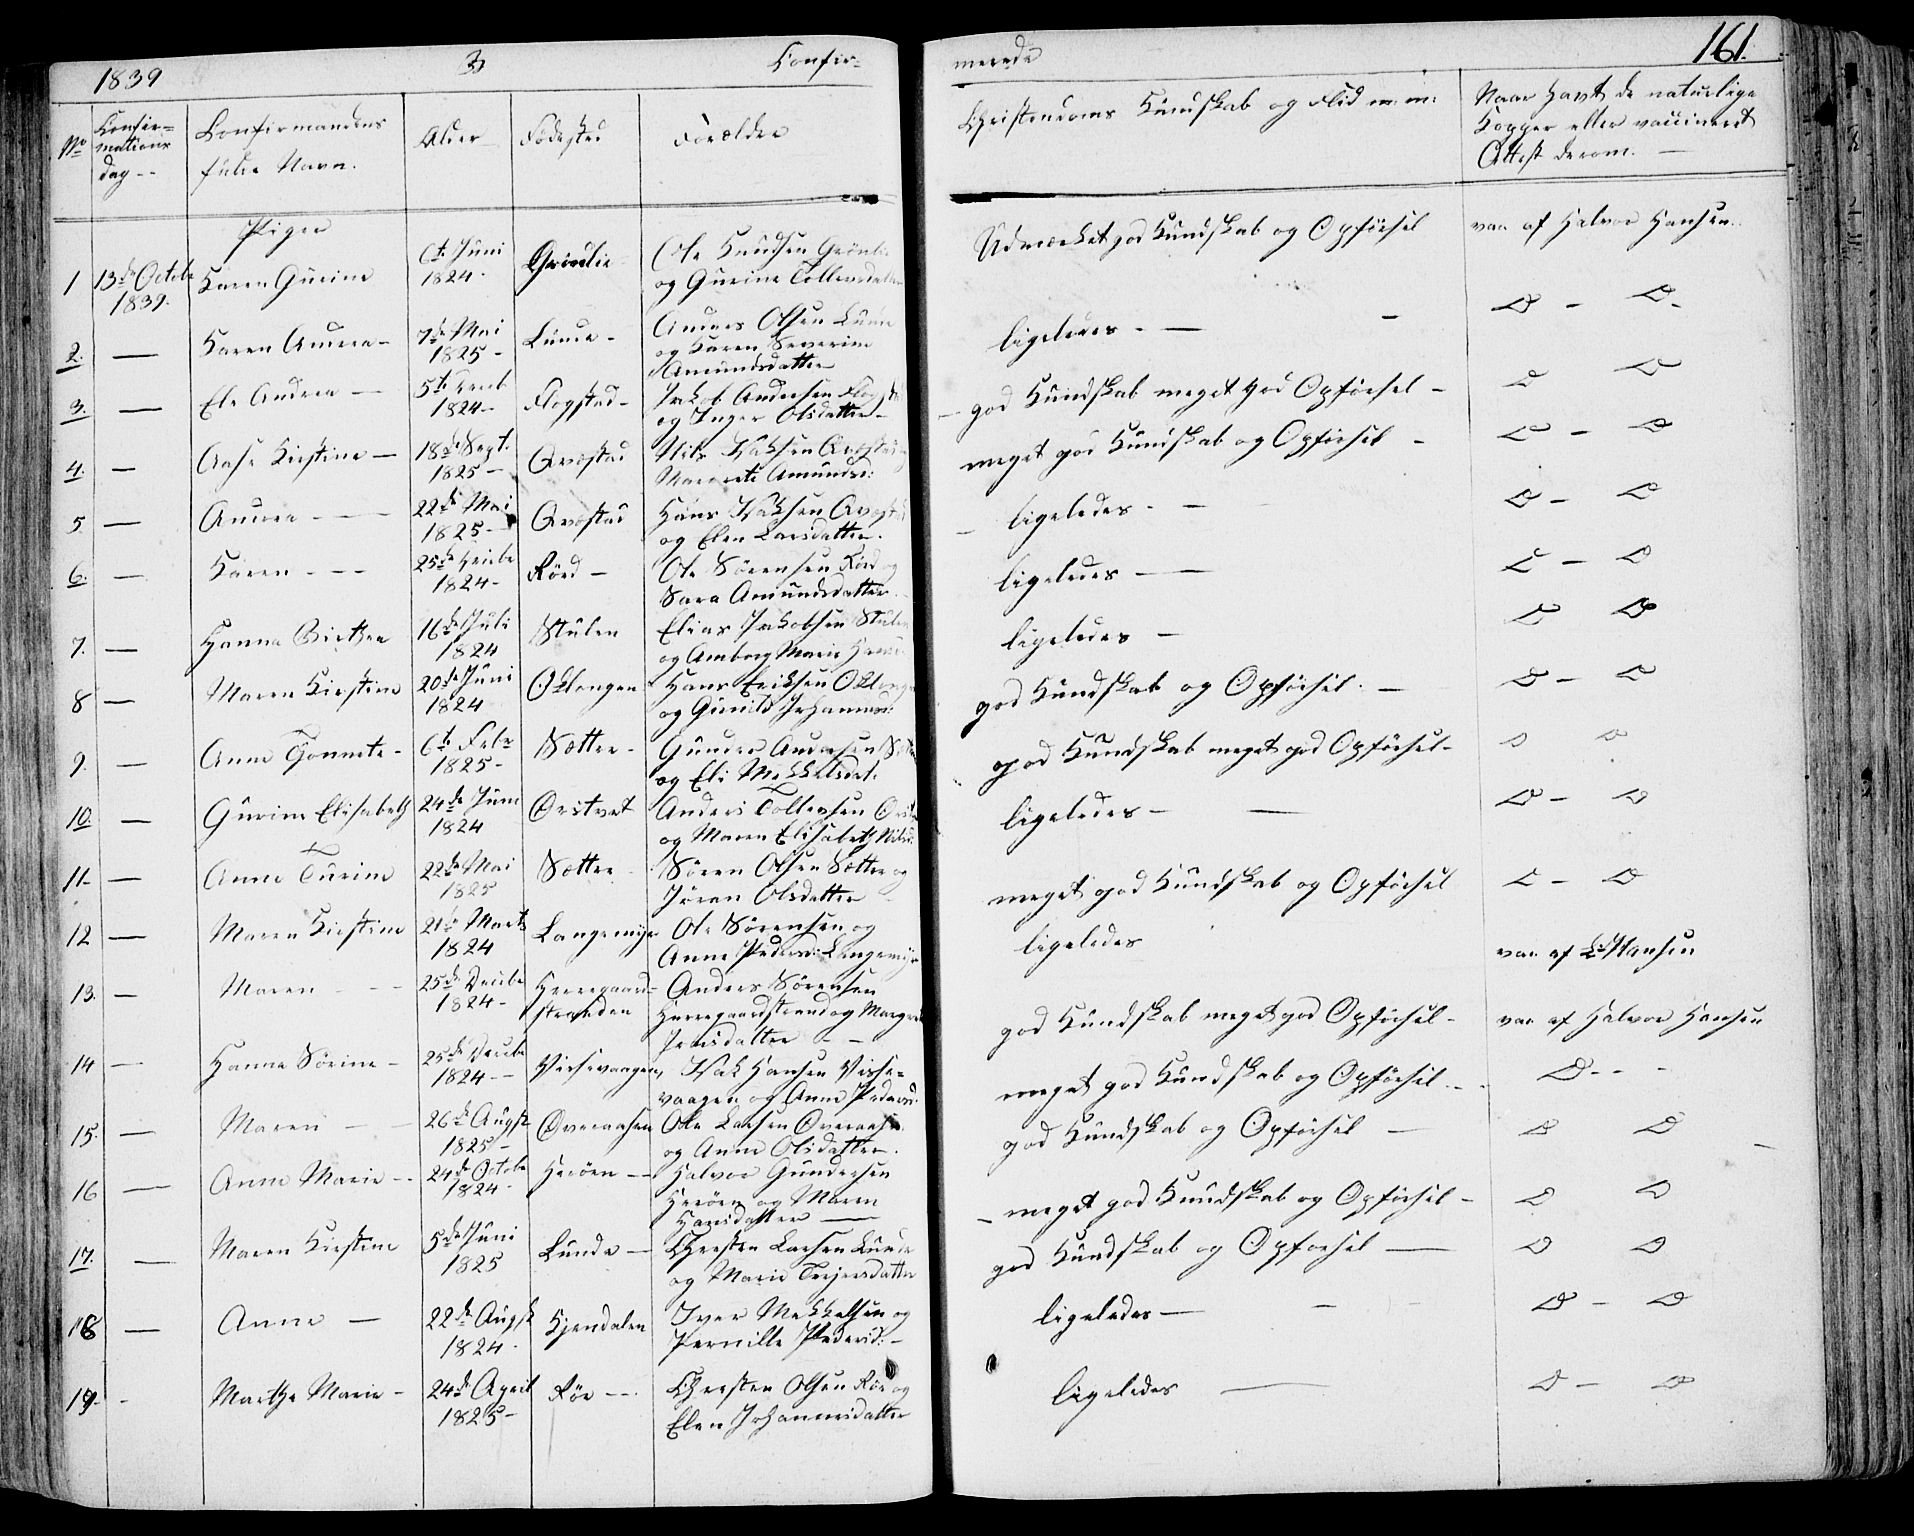 1839 3 Confir= merede 161.
No Confir=mations dag -- Confirmandens fulde Navn. Alder Fødested Forældre Christendoms Kundskab og Flid m: m: Naar havt de naturlige Kopper eller vaccineret Attest derom. —
Piger
1 13de Octobr 1839. Karen Gurine 6te Juni 1824. Grönlie Ole Knudsen Grönlie og Gurine Tollevsdatter Udmærket god Kundskab og Opförsel vac. af Halvor Hansen.
2. — Karen Andrea - 7de Mai 1825 - Lunde - Anders Olsen Lunde og Karen Severine Amundsdatter ligeledes - — D - D -
3. — Ele Andrea — 5te 1824 - Flogstad - Jakob Andersen Flogstad og Inger Olsdatter - god Kundskab meget god Opförsel - D D
4. — Aase Kirstine — 18de Sept. 1825 - Qvastad Nils Isaksen Qvastad og Margrete Amundsd: meget god Kundskab og Opförsel - D - D
5 — Andrea - - - 22de Mai 1825 - Qvastad Hans Isaksen Qvastad og Elen Larsdatter. ligeledes - — D - D
6. — Karen - - - 25de 1824 - Rörd - Ole Sörensen Rörd og Sara Amundsdatter. ligeledes - — D - D
7. — Hanna Birthea 16de Juli 1824 Stulen Elias Jakobsen Stulen og Amborg Marie ligeledes - D D
8 — Maren Kirstine 20de Juni 1824 Oklengen Hans Eriksen og Gunild Johannesd: god Kundskab og Opförsel. — D - D
9. — Anne Tonnete - 6te Febr 1825 - Sætter - Gunder Andersen og Eli Mekkelsdat. god Kundskab meget god Opförsel - D D
10. — Gurine Elisabeth 24de Juni 1824 Östvet Anders Tollevsen og Maren Elisabeth Nilsd: ligeledes - — D - D
11 - — Anne Turine 22de Mai 1825 Sætter - Sören Olsen Sætter og Jöran Olsdatter meget god Kundskab og Opförsel D - D
12 — Maren Kirstine 21de Marts 1824 Langemyr Ole Sörensen og Anne Pedersd: Langemyr ligeledes vac. af L. Hansen
13. — Maren - - - 25de Decbr 1824 - Herregaardstranden Anders Sörensen Herregaardstrand og Margrete Jensdatter - - god Kundskab meget god Opförsel - vac. af Halvor Hansen
14 — Hanna Sörine - 25de Decbr 1824 - - Vissevaagen, Isak Hansen Visse=vaagen og Anne Pedersd: meget god Kundskab og Opförsel. - - D - - -
15. — Maren - - 26de Augst 1825 - Overaasen Ole Larsen Overaasen og Anne Olsdatter. god Kundskab og Opförsel — D D
16 — Anne Marie - - 24de Octobr 1824 - Heröen - - Halvor Gundersen Heröen og Maren Hansdatter — meget god Kundskab og Opförsel - D D
17. — Maren Kirstine 5te Juni 1825 Lunde — Chersten Larsen Lunde og Marie Terjersdatter god Kundskab og Opförsel — D D
18 — Anne — 22de Augst 1824. Kjendalen Iver Mekkelsen og Pernille Pedersd: - ligeledes — - D - D
19. - Marthe Marie - 24de April 1825 - Rör - -. Chersten Olsen Rör og Elen Johannesdatter ligeledes — D - D